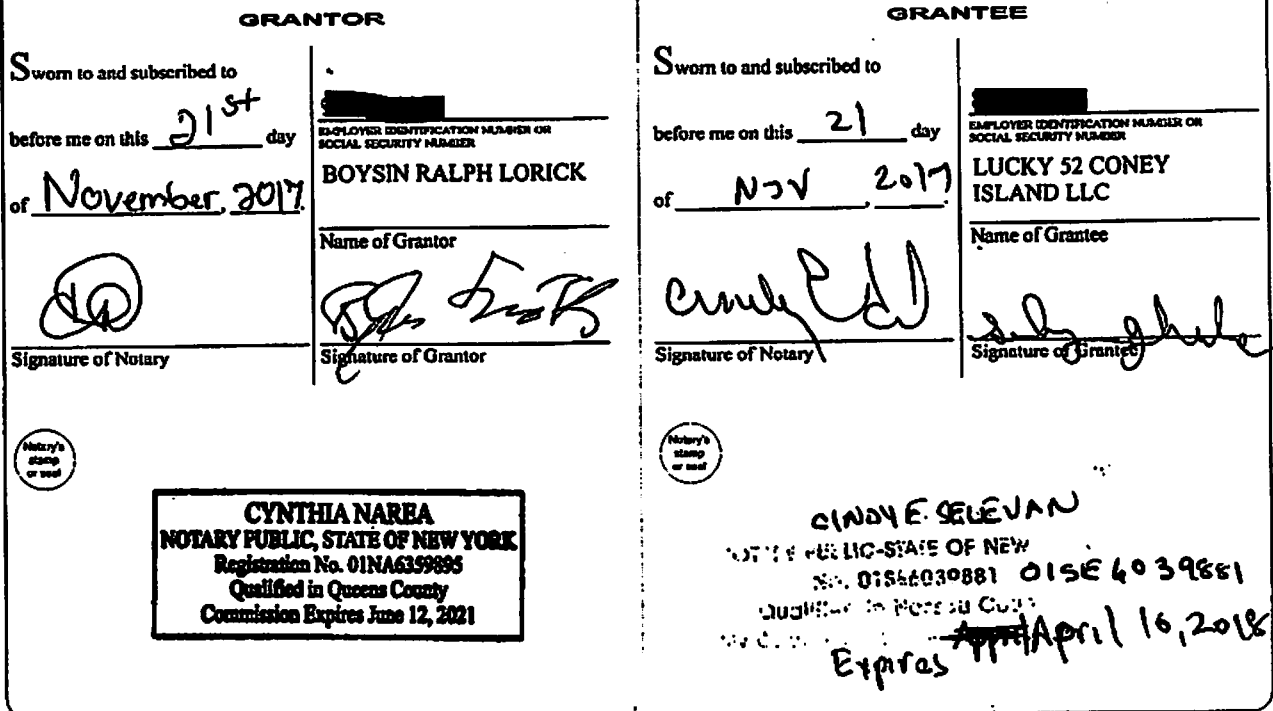 GRANTOR
Sworn to and subscribed to
before me on this 21st day
of November, 2017.
EMPLOYER IDENTIFICATION NUMBER OR
SOCIAL SECURITY NUMBER
BOYSIN RALPH LORICK
Name of Grantor
Signature of Notary
Signature of Grantor
Notary's
stamp
or seal
CYNTHIA NAREA
NOTARY PUBLIC, STATE OF NEW YORK
Registration No. 01NA6359895
Qualified in Queens County
Commission Expires June 12, 2021
GRANTEE
Sworn to and subscribed to
before me on this 21 day
of Nov, 2017
EMPLOYER IDENTIFICATION NUMBER OR
SOCIAL SECURITY NUMBER
LUCKY 52 CONEY
ISLAND LLC
Name of Grantee
Signature of Notary
Signature of Grantee
Notary's
stamp
or seal
CINDY E. SELEVAN
PUBLIC-STATE OF NEW
No. 01SE6039881 01SE6039881
Qualified in Nassau
Expires April 16, 2018